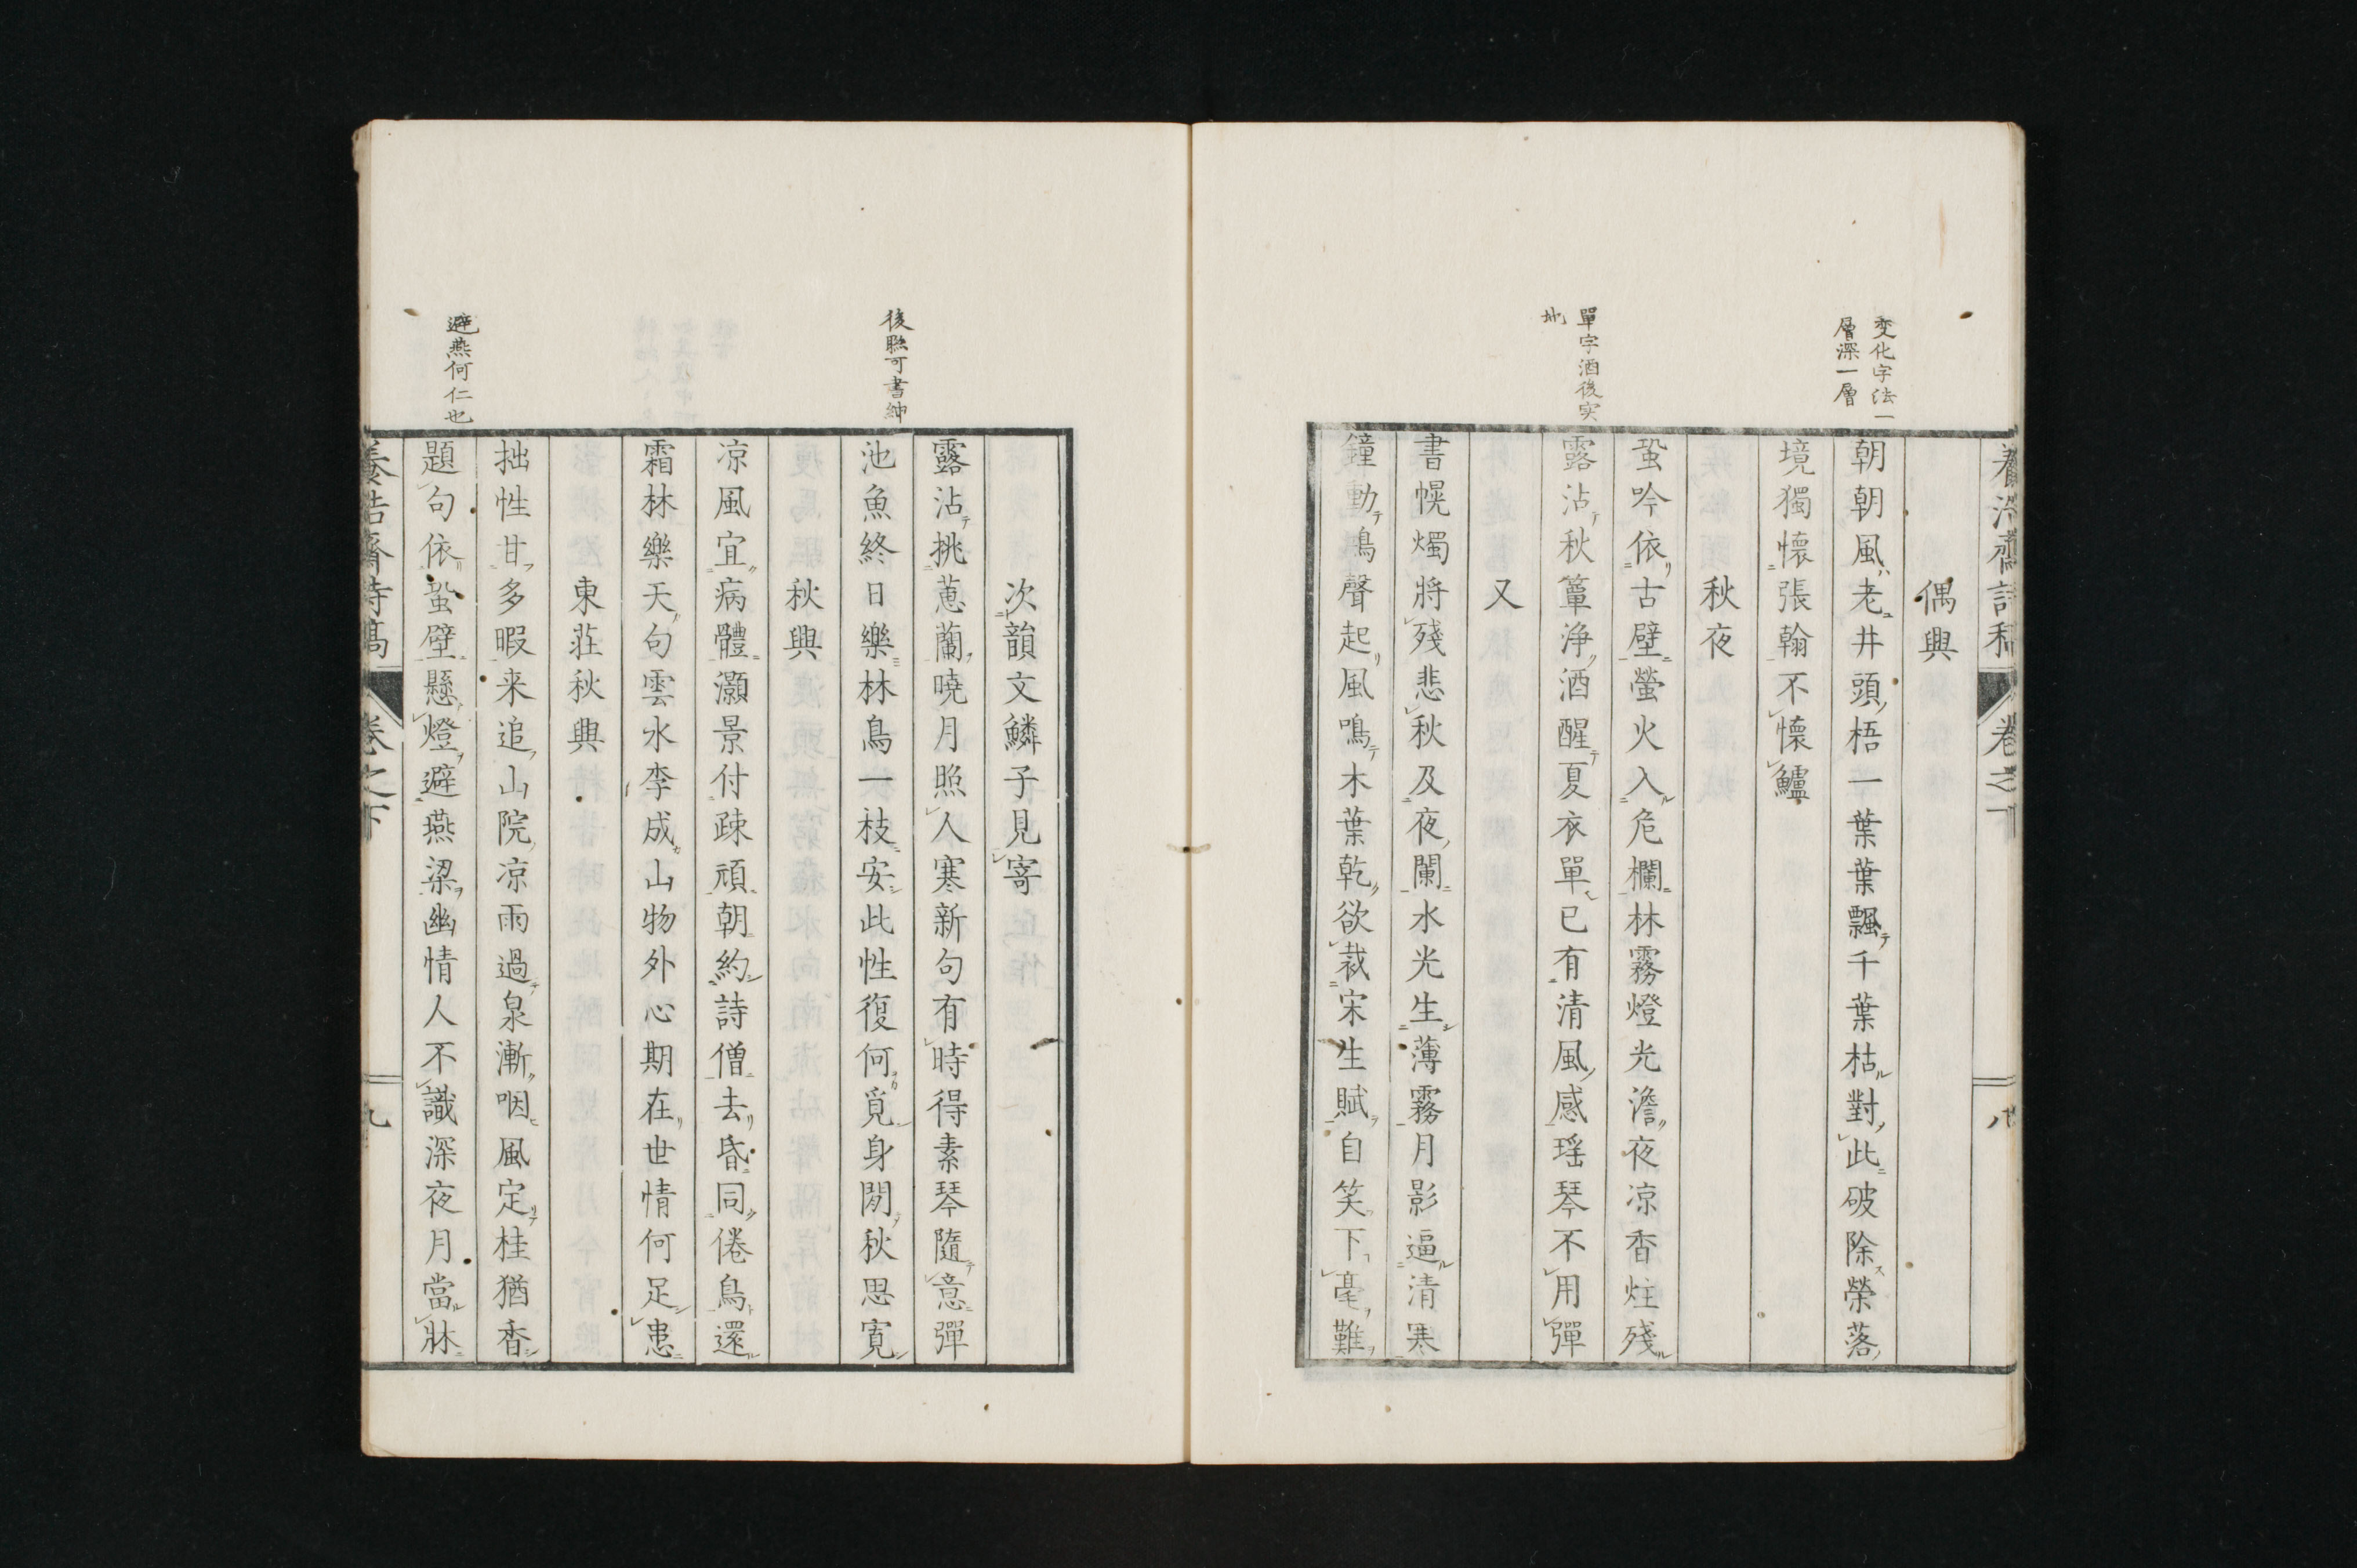 変化字法一
層深一層
單字酒後実
地
偶興
朝朝風老井頭梧一葉葉飄千葉枯對此破除榮落
境獨懷張翰不懷鱸
秋夜
蛩吟依古壁螢火入危欄林霧燈光澹夜凉香炷殘
露沾秋簟淨酒醒夏衣單已有清風感瑶琴不用彈
又
書幌燭將殘悲秋及夜闌水光生薄霧月影逼清寒
鐘動鳥聲起風鳴木葉乾欲裁宋生賦自笑下毫難
卷之下
八
後聯可書紳
避燕何仁也
次韻文鱗子見寄
露沾挑蕙蘭曉月照人寒新句有時得素琴隨意彈
池魚終日樂林鳥一枝安此性復何覓身閒秋思寛
秋興
凉風宜病體灝景付疎頑朝約詩僧去昏同倦鳥還
霜林樂天句雲水李成山物外心期在世情何足患
東莊秋興
拙性甘多暇来追山院凉雨過泉漸咽風定桂猶香
題句依蛩壁懸燈避燕梁幽情人不識深夜月當牀
養浩齋詩稿
卷之下
九